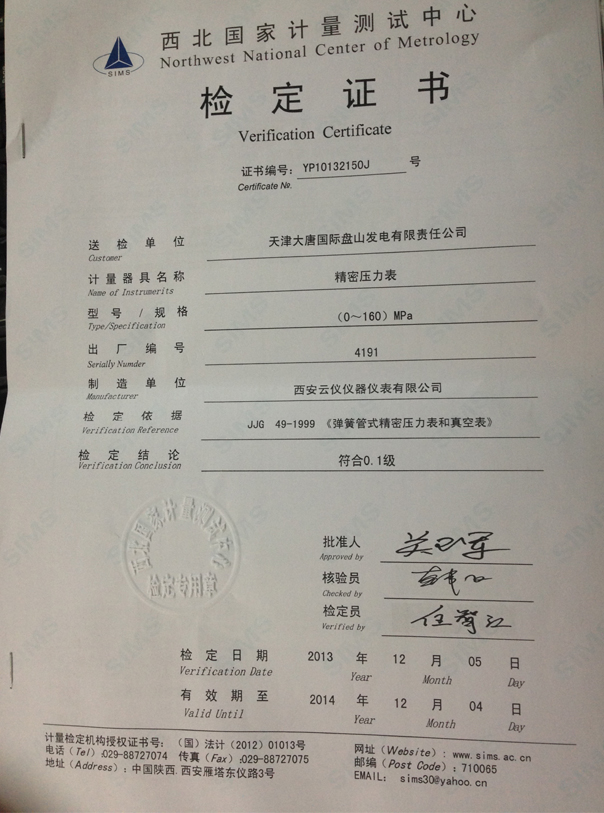 西北国家计量测试中心
Northwest National Center of Metrology
SIMS
检定证书
Verification Certificate
证书编号： YP10132150J 号
Certificate №.
送检单位 天津大唐国际盘山发电有限责任公司
Customer
计量器具名称 精密压力表
Name of Instruments
型号/规格 （0～160）MPa
Type/Specification
出厂编号 4191
Serially Numder
制造单位 西安云仪仪器仪表有限公司
Manufacturer
检定依据 JJG 49-1999 《弹簧管式精密压力表和真空表》
Verification Reference
检定结论 符合0.1级
Verification Conclusion
西北国家计量测试中心
检定专用章
批准人
Approved by
核验员
Checked by
检定员
Verified by
检定日期 2013 年 12 月 05 日
Verification Date Year Month Day
有效期至 2014 年 12 月 04 日
Valid Until Year Month Day
计量检定机构授权证书号：（国）法计（2012）01013号
电话（Tel）:029-88727074 传真（Fax）:029-88727075
地址（Address）：中国陕西.西安雁塔东仪路3号
网址（Website）: www.sims.ac.cn
邮编（Post Code）：710065
EMAIL: sims30@yahoo.cn